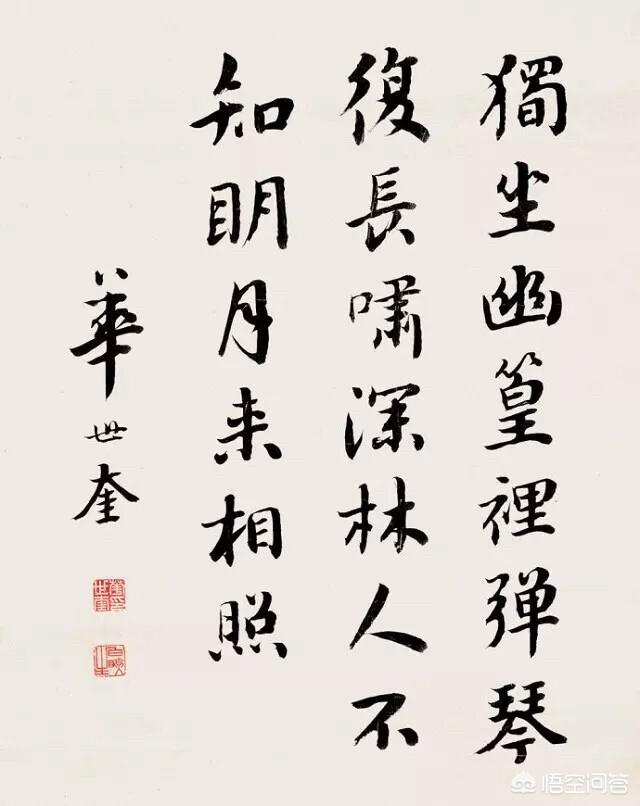 獨坐幽篁裡弹琴
復長嘯深林人不
知明月来相照
華世奎
悟空问答